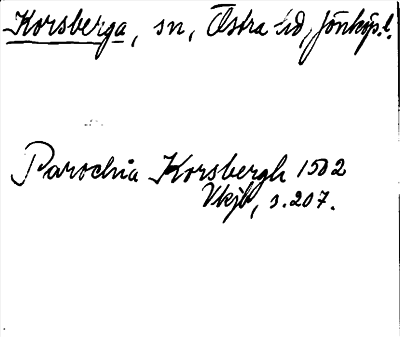 Korsberga, sn, Östra hd, Jönköp. l.
Parochia Korsbergh 1502
Vkjb, s. 207.